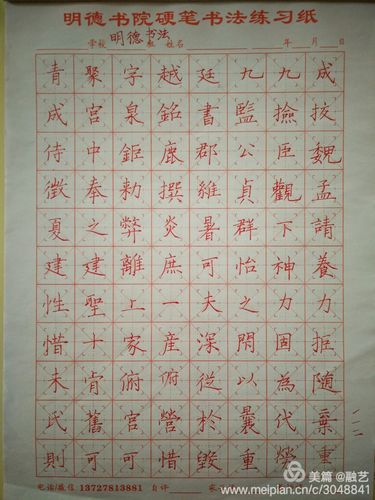 明德书院硬笔书法练习纸
学校 明德书法 姓名 年 月 日
青聚字越廷九九成
成宮泉銘書監撿挍
侍中鉅鹿郡公臣魏
徵奉勑撰維貞觀孟
夏之弊炎暑群下請
建建離庶可怡神養
性聖上一夫之力力
惜十家産深閇固拒
未肯俯俯從以為隨
氏舊宮營於曩代棄
則可可惜毀重勞重
电话/微信 13727813881 自评
美篇 @融艺
www.meipian.cn/c/3048841